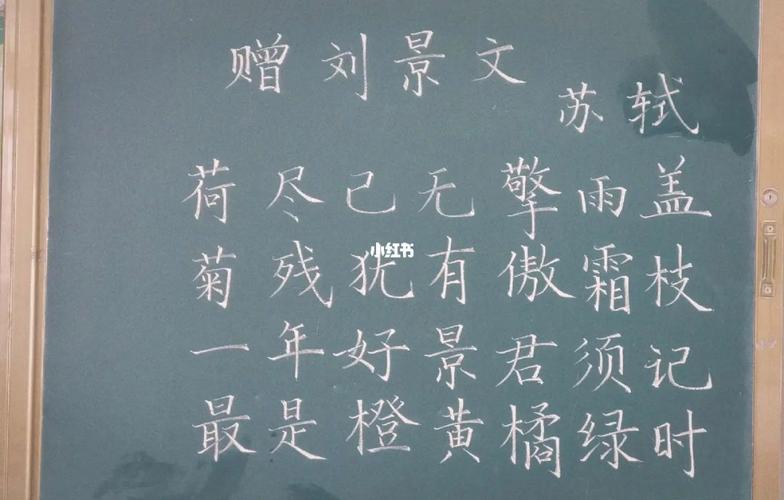 赠刘景文
苏轼
荷尽已无擎雨盖
菊残犹有傲霜枝
一年好景君须记
最是橙黄橘绿时
小红书